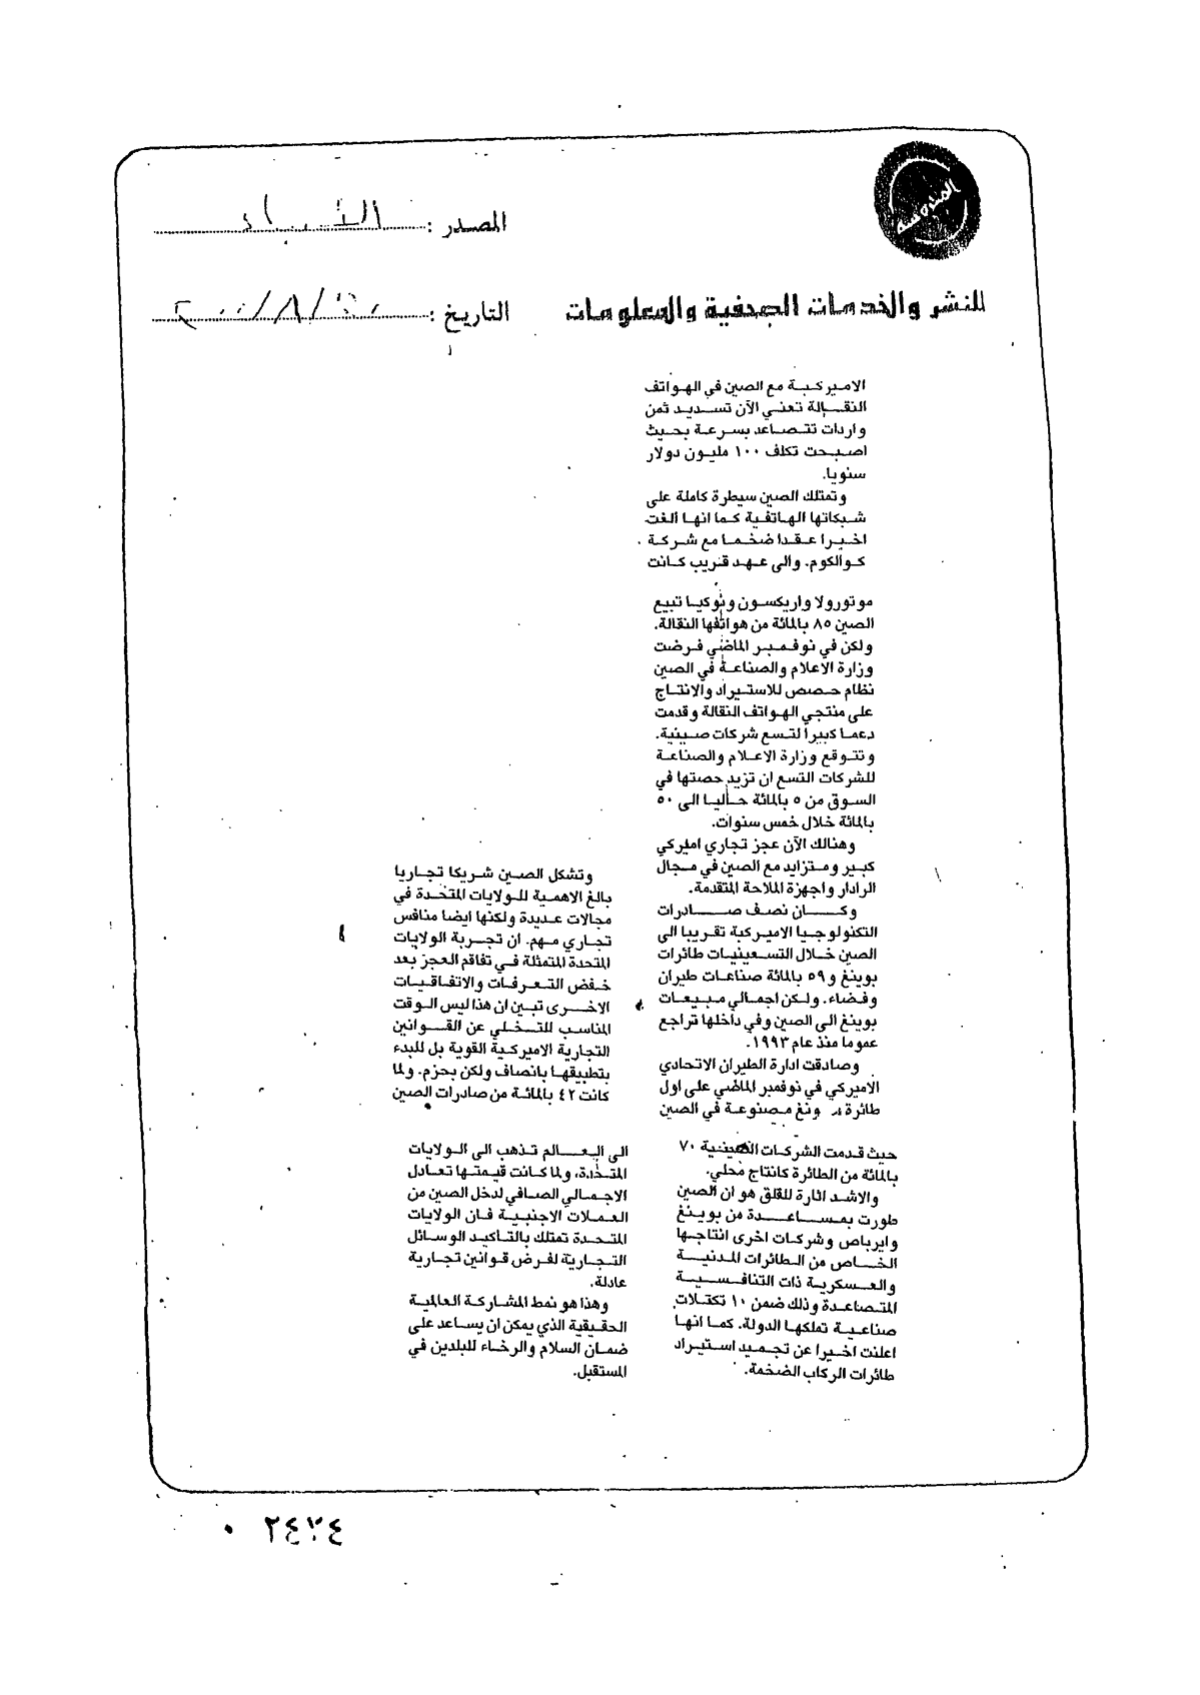 المصدر : الأنباء
للنشر والخدمات الصحفية والمعلومات
التاريخ :
الاميركية مع الصين في الهواتف
النقالة تعني الآن تسديد ثمن
واردات تتصاعد بسرعة بحيث
اصبحت تكلف ١٠٠ مليون دولار
سنويا.
وتمتلك الصين سيطرة كاملة على
شبكاتها الهاتفية كما انها ألغت
اخيرا عقدا ضخما مع شركة
كوالكوم. والى عهد قريب كانت
موتورولا واريكسون ونوكيا تبيع
الصين ٨٥ بالمائة من هواتفها النقالة.
ولكن في نوفمبر الماضي فرضت
وزارة الاعلام والصناعة في الصين
نظام حصص للاستيراد والانتاج
على منتجي الهواتف النقالة وقدمت
دعما كبيرا لتسع شركات صينية.
وتتوقع وزارة الاعلام والصناعة
للشركات التسع ان تزيد حصتها في
السوق من ٥ بالمائة حاليا الى ٥٠
بالمائة خلال خمس سنوات.
وهنالك الآن عجز تجاري اميركي
كبير ومتزايد مع الصين في مجال
الرادار واجهزة الملاحة المتقدمة.
وكان نصف صادرات
التكنولوجيا الاميركية تقريبا الى
الصين خلال التسعينيات طائرات
بوينغ و٥٩ بالمائة صناعات طيران
وفضاء. ولكن اجمالي مبيعات
بوينغ الى الصين وفي داخلها تراجع
عموما منذ عام ١٩٩٣.
وصادقت ادارة الطيران الاتحادي
الاميركي في نوفمبر الماضي على اول
طائرة ونغ مصنوعة في الصين
حيث قدمت الشركات الصينية ٧٠
بالمائة من الطائرة كانتاج محلي.
والاشد اثارة للقلق هو ان الصين
طورت بمساعدة من بوينغ
وايرباص وشركات اخرى انتاجها
الخاص من الطائرات المدنية
والعسكرية ذات التنافسية
المتصاعدة وذلك ضمن ١٠ تكتلات
صناعية تملكها الدولة. كما انها
اعلنت اخيرا عن تجميد استيراد
طائرات الركاب الضخمة.
وتشكل الصين شريكا تجاريا
بالغ الاهمية للولايات المتحدة في
مجالات عديدة ولكنها ايضا منافس
تجاري مهم. ان تجربة الولايات
المتحدة المتمثلة في تفاقم العجز بعد
خفض التعرفات والاتفاقيات
الاخرى تبين ان هذا ليس الوقت
المناسب للتخلي عن القوانين
التجارية الاميركية القوية بل للبدء
بتطبيقها بانصاف ولكن بحزم. ولما
كانت ٤٢ بالمائة من صادرات الصين
الى العالم تذهب الى الولايات
المتحدة، ولما كانت قيمتها تعادل
الاجمالي الصافي لدخل الصين من
العملات الاجنبية فان الولايات
المتحدة تمتلك بالتأكيد الوسائل
التجارية لفرض قوانين تجارية
عادلة.
وهذا هو نمط المشاركة العالمية
الحقيقية الذي يمكن ان يساعد على
ضمان السلام والرخاء للبلدين في
المستقبل.